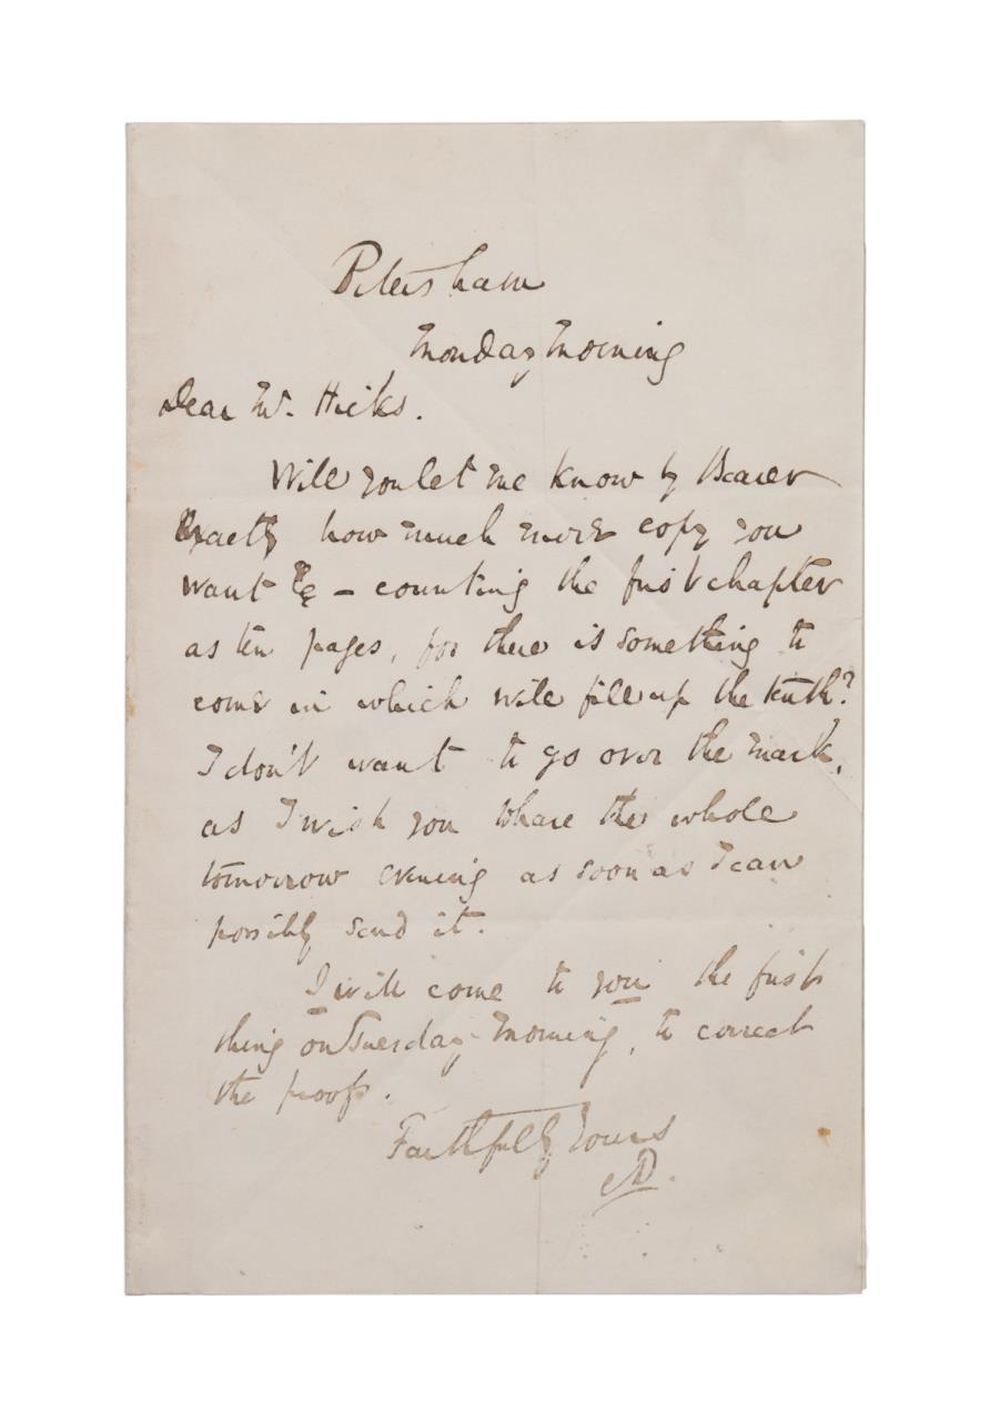 Petersham
Monday Morning
Dear Mr. Hicks.
Will you let me know by Bearer
Exactly how much more copy you
want – counting the first chapter
as ten pages, for there is something to
come in which will fill up the tenth?
I don't want to go over the mark,
as I wish you to have the whole
tomorrow evening as soon as I can
possibly send it.
I will come to you the first
thing on Tuesday Morning, to correct
the proofs.
Faithfully Yours
CD.